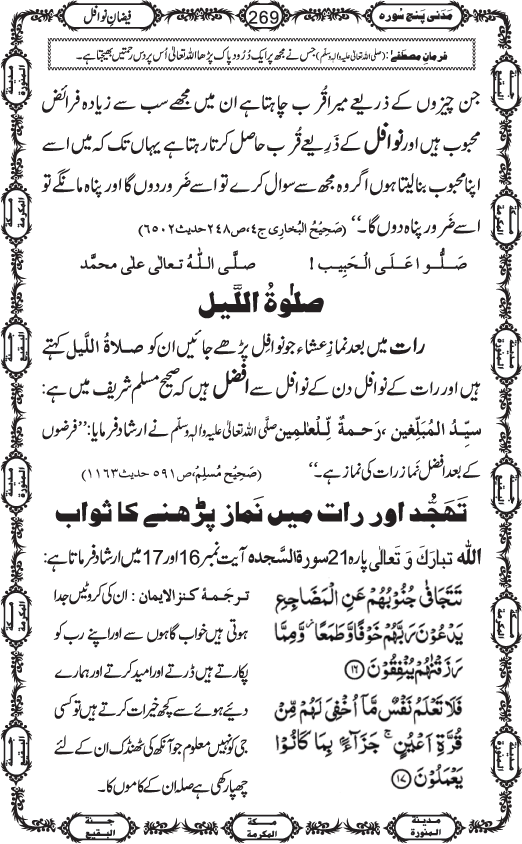 مَدَنی پنج سورہ
269
فیضانِ نوافل
فرمانِ مصطَفٰے : (صلی اللہ تعالیٰ علیہ والہٖ وسلّم) جس نے مجھ پر ایک دُرُودِ پاک پڑھا اللہ تعالیٰ اُس پر دس رحمتیں بھیجتا ہے۔
جن چیزوں کے ذریعے میرا قُرب چاہتا ہے ان میں مجھے سب سے زیادہ فرائض
محبوب ہیں اور نوافل کے ذَرِیعے قُرب حاصل کرتا رہتا ہے یہاں تک کہ میں اسے
اپنا محبوب بنا لیتا ہوں اگر وہ مجھ سے سوال کرے تو اسے ضَرور دوں گا اور پناہ مانگے تو
اسے ضَرور پناہ دوں گا۔‘‘ (صَحِیْحُ البُخارِی ج٤،ص٢٤٨ حدیث٦٥٠٢)
صَلُّوا عَلَی الْحَبِیب ! صلَّی اللّٰہُ تعالٰی علٰی محمَّد
صلٰوۃُ اللَّیل
رات میں بعد نمازِ عشاء جو نوافل پڑھے جائیں ان کو صلاۃُ اللَّیل کہتے
ہیں اور رات کے نوافل دن کے نوافل سے افضل ہیں کہ صحیح مسلم شریف میں ہے:
سیِّدُ المُبَلِّغین ،رَحمۃٌ لِّلْعٰلمِین صلَّی اللہُ تعالیٰ علیہ والہٖ وسلّم نے ارشاد فرمایا:’’فرضوں
کے بعد افضل نَماز رات کی نماز ہے۔‘‘ (صَحِیْحُ مُسلِمْ،ص٥٩١ حدیث ١١٦٣)
تَھَجُّد اور رات میں نَماز پڑھنے کا ثواب
اللہ تبارَکَ وَ تَعالٰی پارہ 21 سورۃُ السَّجدہ آیت نمبر 16 اور 17 میں ارشاد فرماتا ہے:
تَتَجَافٰى جُنُوْبُهُمْ عَنِ الْمَضَاجِعِ
يَدْعُوْنَ رَبَّهُمْ خَوْفًا وَّطَمَعًا ٘ وَّمِمَّا
رَزَقْنٰهُمْ يُنْفِقُوْنَ ﴿۱۶﴾
فَلَا تَعْلَمُ نَفْسٌ مَّاۤ اُخْفِيَ لَهُمْ مِّنْ
قُرَّةِ اَعْيُنٍ ۚ جَزَآءًۢ بِمَا كَانُوْا
يَعْمَلُوْنَ ﴿۱۷﴾
ترجَمۂ کنزالایمان : ان کی کروٹیں جدا
ہوتی ہیں خواب گاہوں سے اور اپنے رب کو
پکارتے ہیں ڈرتے اور امید کرتے اور ہمارے
دیئے ہوئے سے کچھ خیرات کرتے ہیں تو کسی
جی کو نہیں معلوم جو آنکھ کی ٹھنڈک ان کے لئے
چھپا رکھی ہے صلہ ان کے کاموں کا۔
جنۃ البقیع
مدینۃ المنورۃ
مکۃ المکرمۃ
جنۃ البقیع
مدینۃ المنورۃ
مکۃ المکرمۃ
جنۃ البقیع
جنۃ البقیع
مکۃ المکرمۃ
مدینۃ المنورۃ
جنۃ البقیع
مکۃ المکرمۃ
مدینۃ المنورۃ
مدینۃ المنورۃ
مکۃ المکرمۃ
جنۃ البقیع